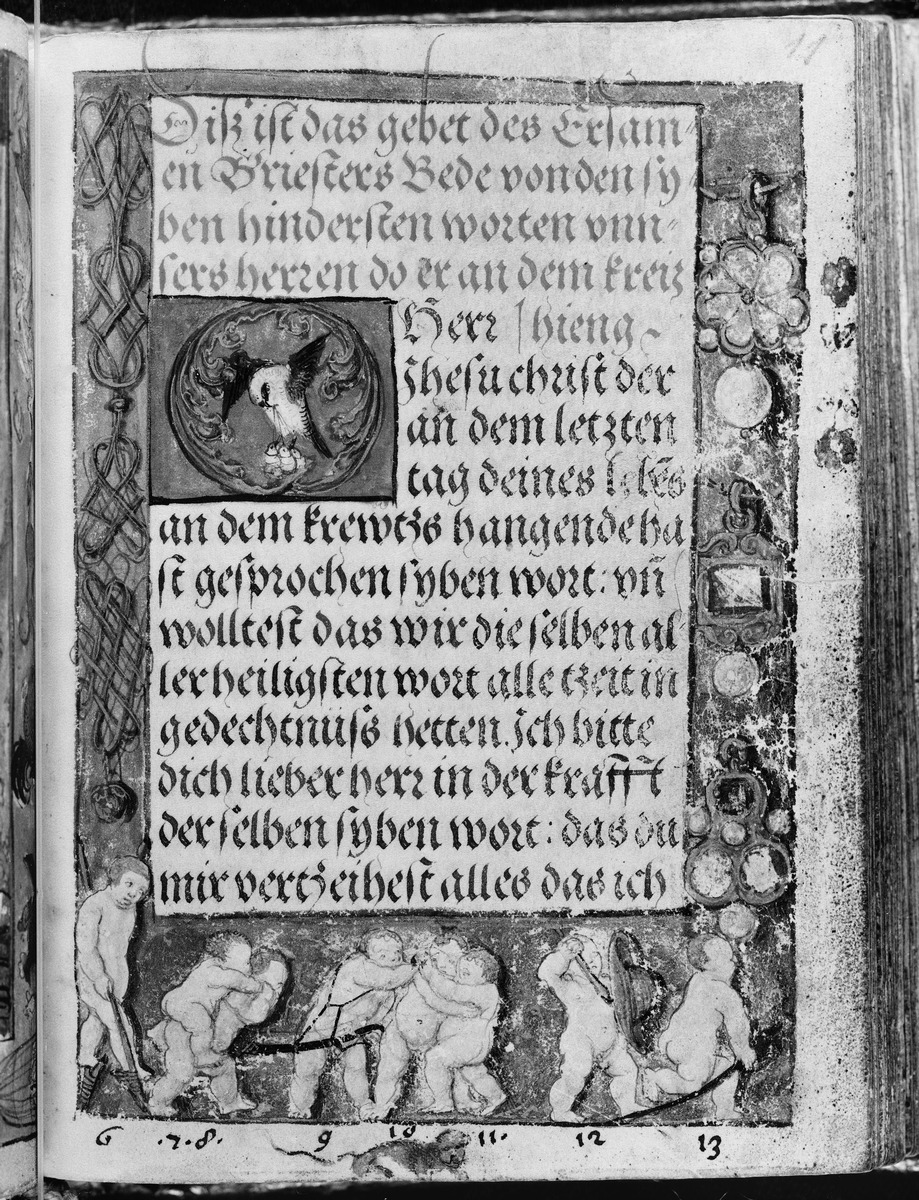 Disz ist das gebet des Ersam-
en Briesters Bede von den sy
ben hindersten worten vnn-
sers herren do er an dem kreiz
Herr hieng
Jhesu christ der
an dem letzten
tag deines lebēs
an dem krewtzs hangende ha
st gesprochen syben wort: vn̄
wolltest das wir die selben al-
ler heiligsten wort alle tzeit in
gedechtnüss hetten. Ich bitte
dich lieber herr in der krafft
der selben syben wort: das du
mir vertzeihest alles das ich
6 .7.8. 9 10 11. 12 13